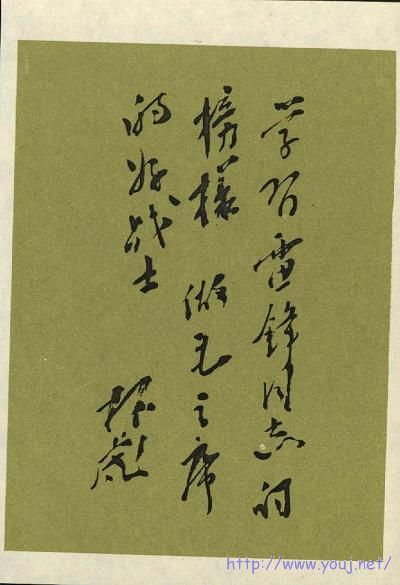 学习雷鋒同志的
榜樣 做毛主席
的好战士
林彪
http://www.youj.net/